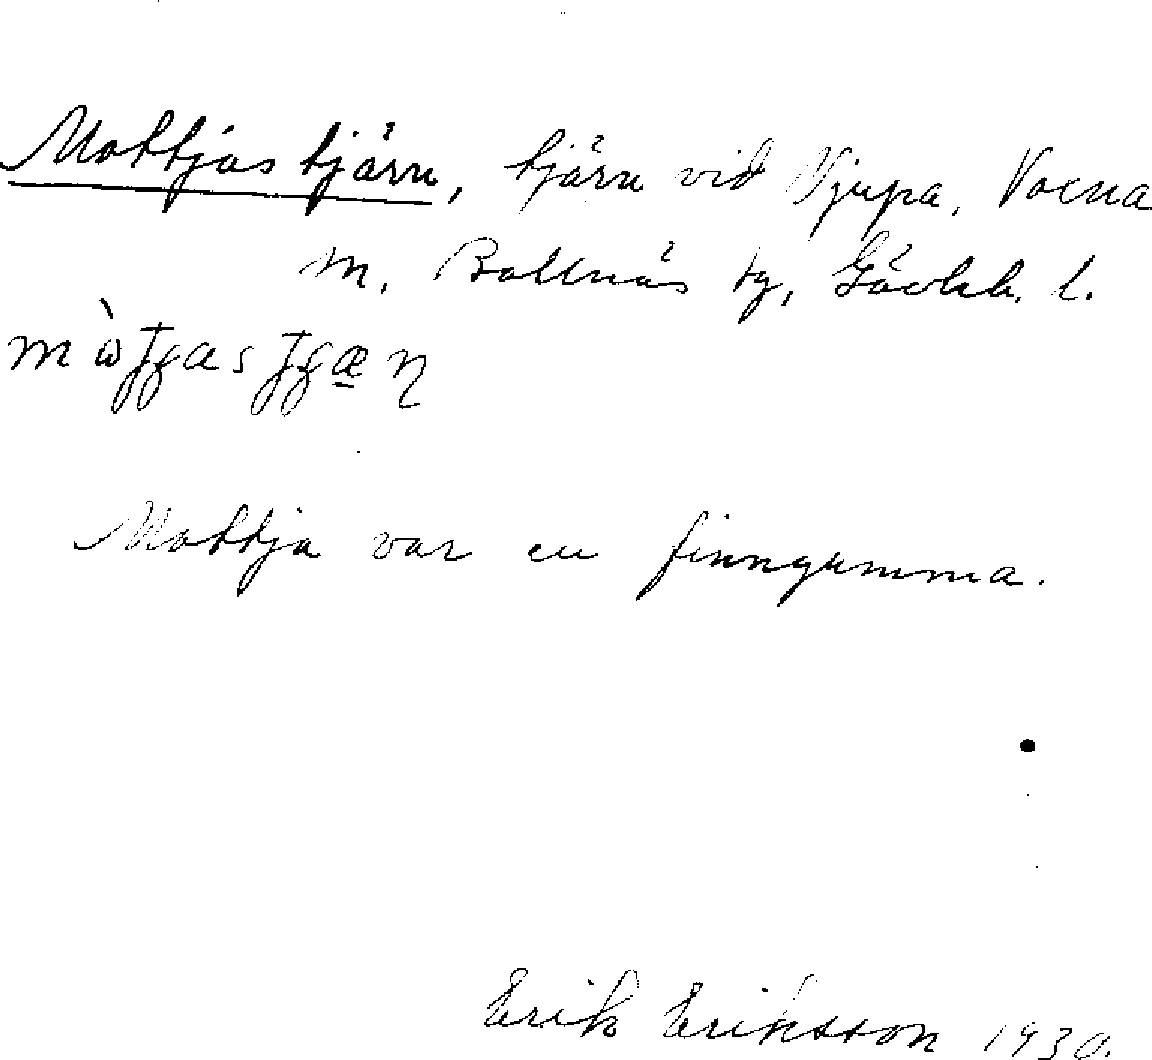 Mattjas tjärn, tjärn vid Djupa, Voxna
m. Bollnäs tg, Gävleb. l.
Mattja var en finngumma.
Erik Eriksson 1930